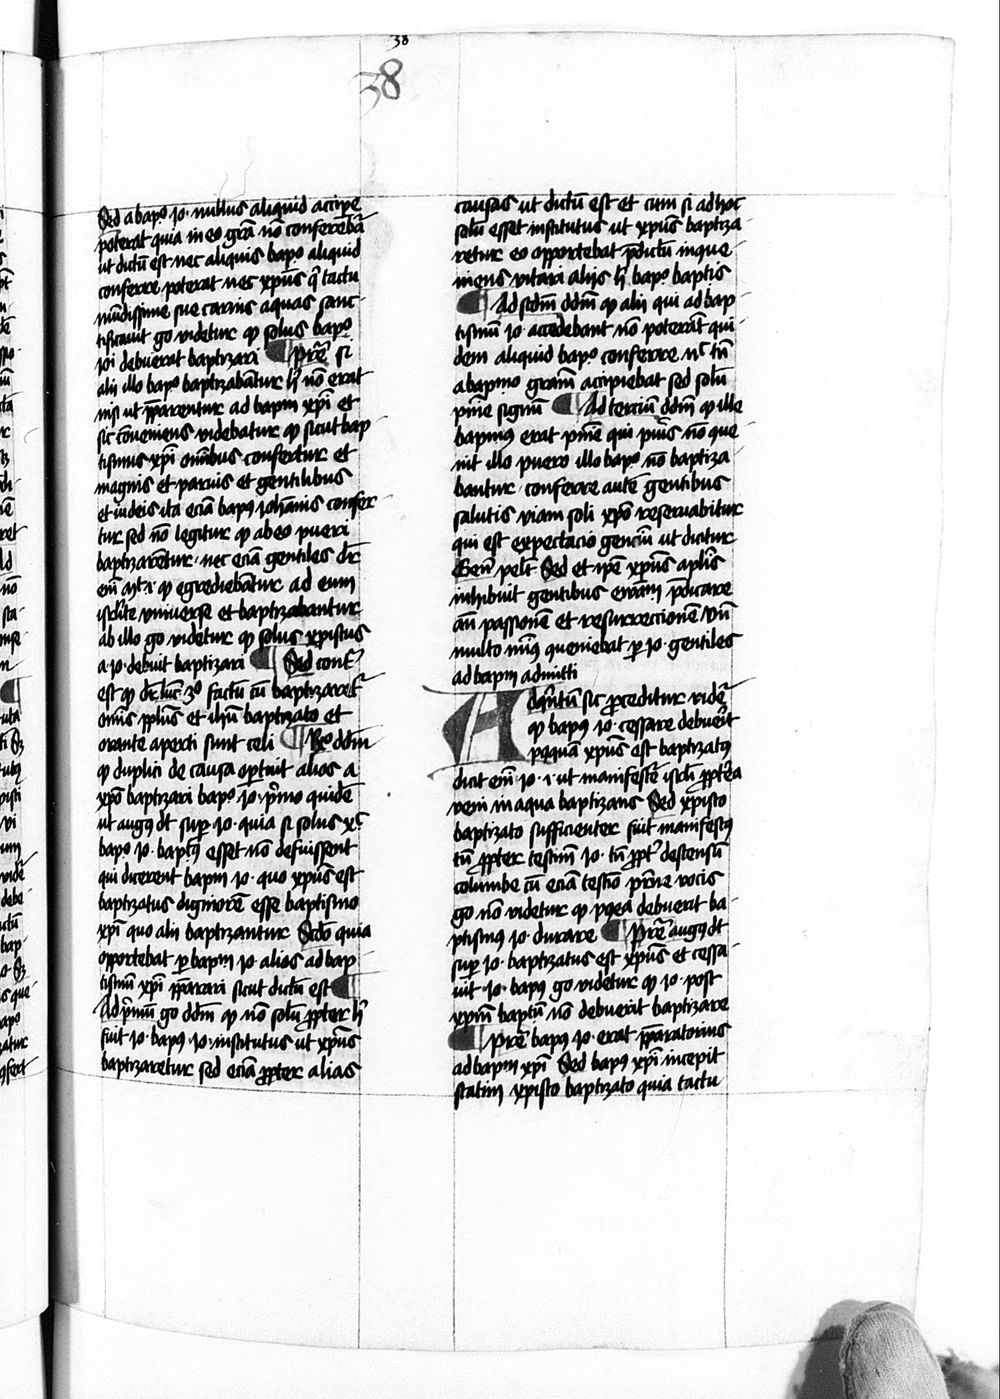 38
38
Sed a bapo io. nullus aliquid accipe
poterat quia in eo gra̅ no̅ conferebat̅
ut dictu̅ est nec aliquis bapo aliquid
conferre poterat nec xpu̅s q̅ tactu
mu̅dissime sue carnis aquas sanc-
tificauit go videtur qp solus bapo
ioi debuerat baptizari ¶ Pret̅ si
alii illo bapo baptizaba̅tur h̅ no̅ erat
nisi ut p̅pararentur ad bapm xpi̅ et
sic co̅ueniens videbatur qp sicut bap
tismus xpi̅ om̅ibus confertur et
magnis et paruis et gentilibus
et iudeis ita ecia̅ bapus ioha̅nis confer-
tur sed no̅ legitur qp ab eo pueri
baptizare̅tur. nec ecia̅ gentiles dr̅
em̅ qp egredieba̅tur ad eum
universe et baptizabantur
ab illo go videtur qp solus xpistus
a. io. debuit baptizari ¶ Sed cont̅
est qp dr̅ luc̅ 3o factu̅ cu̅ baptizaret̅
om̅is pplus et ihu̅ baptizato et
orante aperti sunt celi ¶ Ro ddm̅
qp duplici de causa optuit alios a
xpo̅ baptizari bapo io. p̅mo quide̅
ut augus dt sup̅ io. quia si solus x̅c
bapo io. baptus esset no̅ defuissent
qui dicerent bapm io. quo xpu̅s est
baptizatus digniore̅ esse baptismo
xpi̅ quo alii baptizantur Sc̅do quia
opportebat p̅ bapm io. alios ad bap-
tismu̅ xpi̅ p̅parari sicut dictu̅ est ¶
Ad p̅mu̅ go dd̅m qp no̅ solu̅ p̅pter h̅
fuit io. bapus io. institutus ut xpu̅s
baptizaretur sed ecia̅ p̅pter alias
causas ut dictu̅ est et cum si ad hoc
solu̅ esset institutus ut xpu̅s baptiza-
retur eo opportebat p̅dictu̅ inque-
niens vitari aliis h̅ bapo baptis
¶ Ad scd̅m dd̅m qp alii qui ad bap-
tismu̅ io. accedebant no̅ potera̅t qui-
dem aliquid bapo conferre nc̅ tn̅
a bapmo gram̅ accipiebat sed solu̅
pnie̅ signu̅ ¶ Ad terciu̅ dd̅m qp ille
bapmus erat pnie̅ qui pu̅is no̅ que-
nit illo puero illo bapo no̅ baptiza-
bantur. conferre aute̅ gentibus
salutis viam soli xpo̅ reservabitur
qui est expectacio genciu̅ ut dicitur
Gen̅ penlt̅ Sed et ip̅e xpu̅s aplis̅
inhibuit gentibus p̅dicare
an̅ passione̅ et resurreccione̅ vn̅
multo min̅us queniebat p̅ io. gentiles
ad bapm admitti
Ad qi̅ntu̅ sic p̅ceditur videt̅
qp bapus io. cessare debuerit
pqqua̅ xpu̅s est baptizatus
dicit em̅ io. i. ut manifestet̅ isrl̅ p̅pterea
veni in aqua baptizans Sed xpisto
baptizato sufficienter fuit manifestus
tu̅ p̅pter testim̅ io. tu̅ p̅pt̅ descensu̅
columbe tu̅ ecia̅ testio p̅rne vocis
go no̅ videtur qp pqea debuerit ba-
ptismus io. durare ¶ Pret̅ augus dt
sup̅ io. baptizatus est xpu̅s et cessa-
uit. io. bapus go videtur qp io. post
xpm̅ baptu̅ no̅ debuerit baptizare
¶ Pret̅ bapus io. erat p̅paratorius
ad bapm xpi̅ Sed bapus xpi̅ incepit
statim xpisto baptizato quia tactu